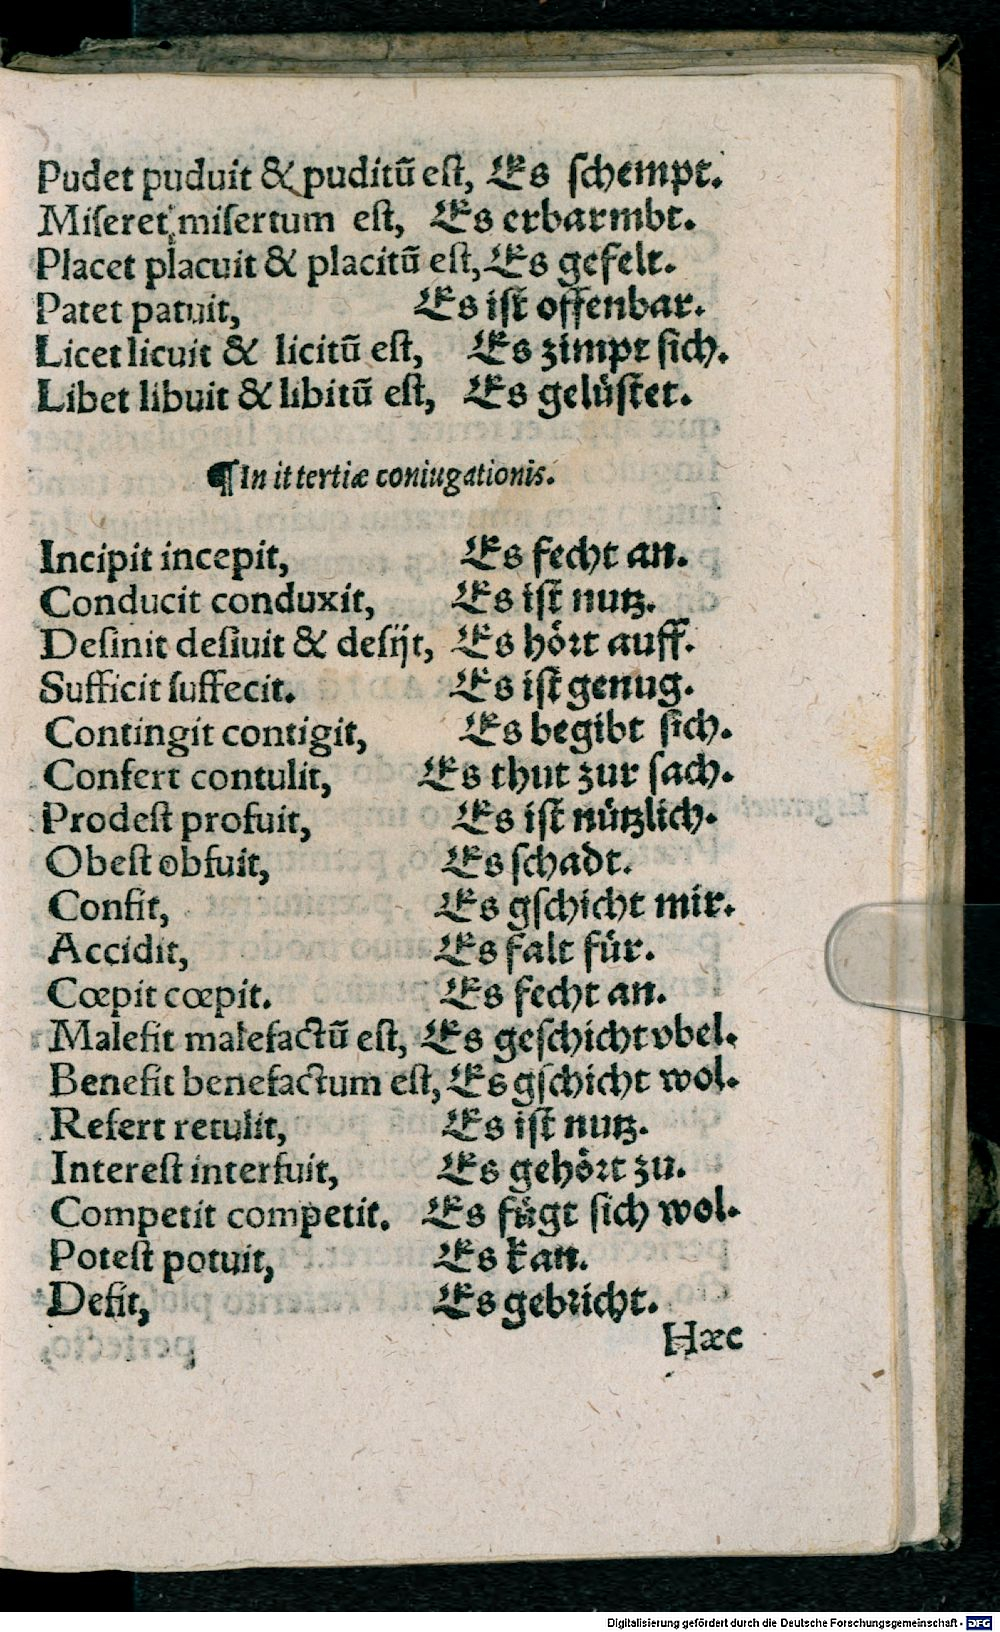 Pudet puduit & puditū eſt, Es ſchempt.
Miſeret miſertum eſt, Es erbarmbt.
Placet placuit & placitū eſt, Es gefelt.
Patet patuit, Es iſt offenbar.
Licet licuit & licitū eſt, Es zimpt ſich.
Libet libuit & libitū eſt, Es gelüſtet.
¶ In it tertiæ coniugationis.
Incipit incepit, Es fecht an.
Conducit conduxit, Es iſt nutz.
Deſinit deſiuit & deſijt, Es hoͤꝛt auff.
Sufficit ſuffecit. Es iſt genug.
Contingit contigit, Es begibt ſich.
Confert contulit, Es thut zur ſach.
Prodeſt profuit, Es iſt nützlich.
Obeſt obfuit, Es ſchadt.
Confit, Es gſchicht mir.
Accidit, Es falt für.
Cœpit cœpit. Es fecht an.
Malefit malefactū eſt, Es geſchicht vbel.
Benefit benefactum eſt, Es gſchicht wol.
Refert retulit, Es iſt nutz.
Intereſt interfuit, Es gehoͤꝛt zu.
Competit competit. Es fuͤgt ſich wol.
Poteſt potuit, Es kan.
Defit, Es gebꝛicht.
Hæc
Digitalisierung gefördert durch die Deutsche Forschungsgemeinschaft - DFG